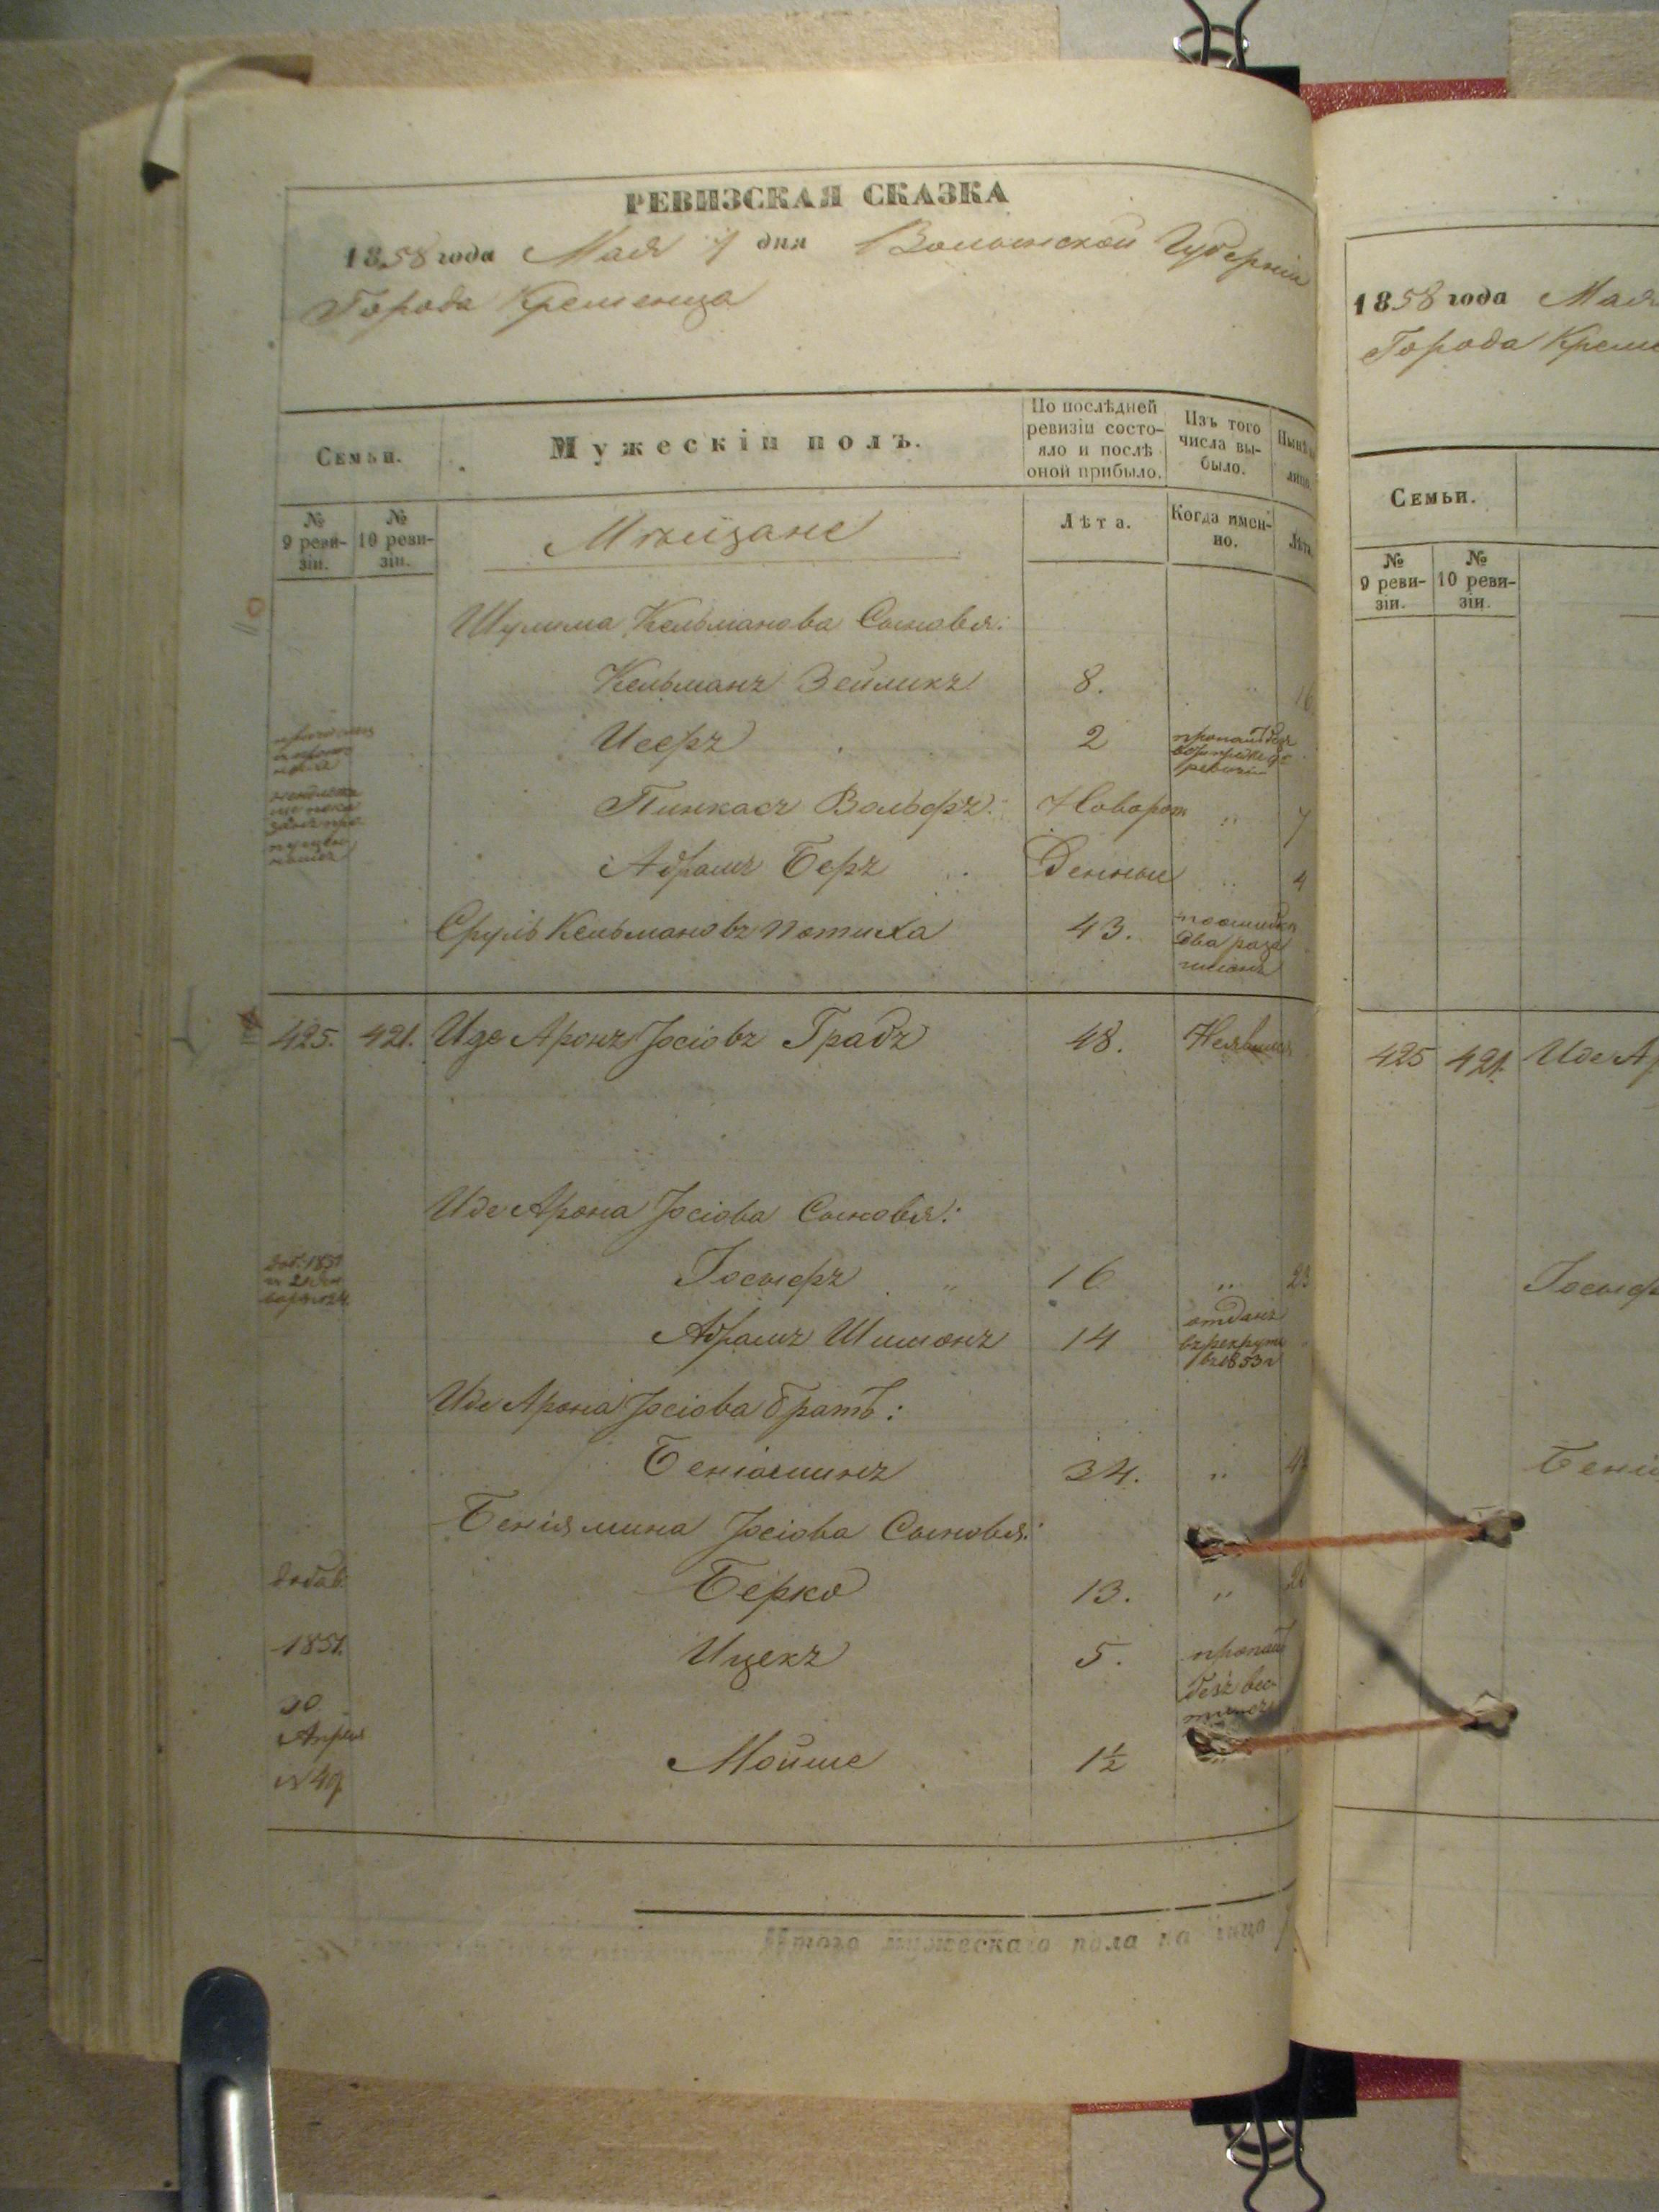 РЕВИЗСКАЯ СКАЗКА
1858 года Мая 7 дня Волынской Губерніи
Города Кременца
Семьи.
Мужескій полъ.
По послѣдней ревизіи состояло и послѣ оной прибыло.
Изъ того числа выбыло.
№ 9 ревизіи.
№ 10 ревизіи.
Мѣщане
Лѣта.
Когда именно.
Лѣта.
Шулима Кельманова Сыновья:
Кельманъ Зейликъ 8. 16
Иссеръ 2
Пинкасъ Вольфъ Новорож 7
Абрамъ Беръ денные 4
Сруль Кельмановъ Потиха 43. по ошибкѣ
два раза
писанъ
425. 421. Иде Аронъ Іосіовъ Градъ 48. Неявился
Иде Арона Іосіова Сыновья:
Іосьефъ 16 " 23
Абрамъ Шимонъ 14 отданъ
въ рекруты
въ 1853 г
Иде Арона Іосіова братъ:
Беніаминъ 34. "
Беніямина Іосіова Сыновья:
добав. Берко 13. "
1851. Ицекъ 5. пропалъ
безъ вес-
20
Апреля Мойше 1½ "
№ 49
Итого мужескаго пола на лицо
1858 года Мая
Города Креме
Семьи.
№ 9 ревизіи.
№ 10 ревизіи.
425 421. Иде Ар
Іосьеф
Бені